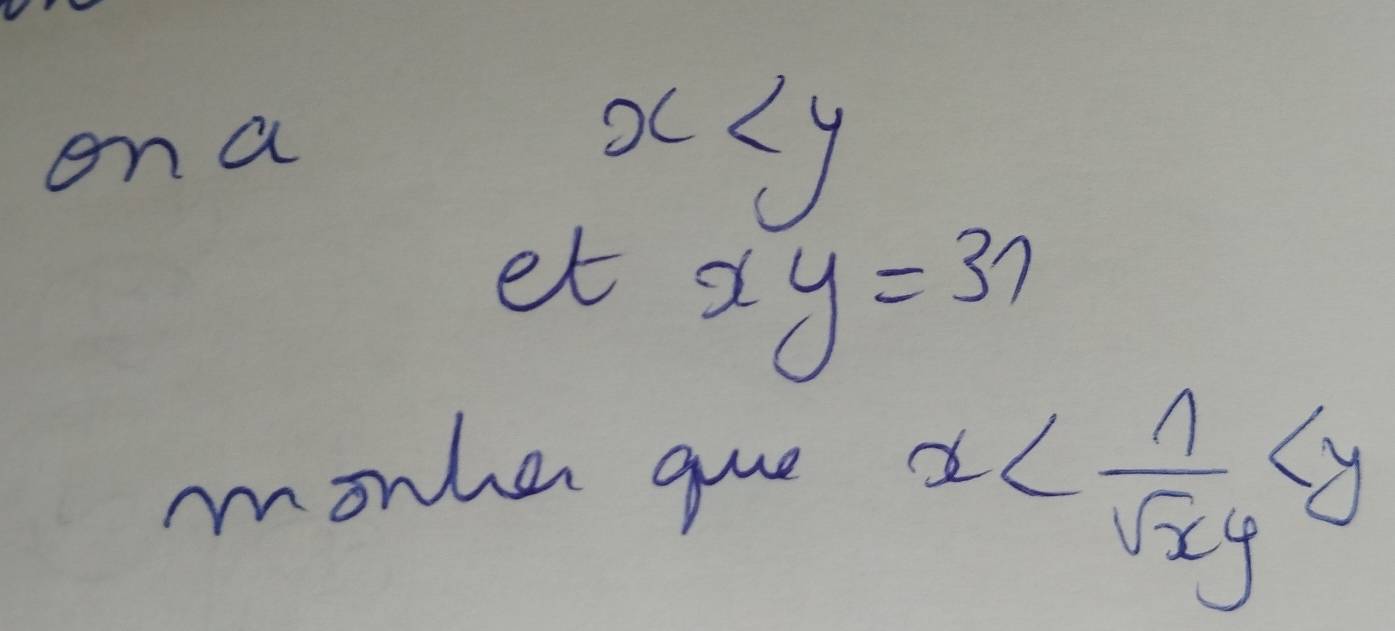 on a x < y
et xy = 31
montrer que x < 1/√xy < y